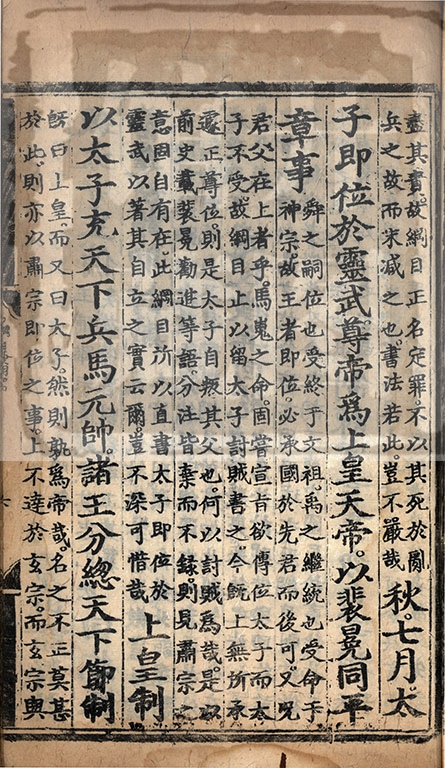 盡其實。故綱目正名定罪。不以其死於圍
兵之故而末減之也。書法若此。豈不嚴哉
秋。七月太
子即位於靈武。尊帝爲上皇天帝。以裴冕同平
章事
舜之嗣位也受終于文祖。禹之繼統也受命于
神宗。故王者即位。必承國於先君而後可。又况
君父在上者乎。馬嵬之命。固嘗宣旨欲傳位太子而太
子不受。故綱目止以留太子討賊書之。今既上無所承
遽正尊位。則是太子自叛其父也。何以討賊爲哉。是以
前史載裴冕勸進等語。分注皆棄而不錄。則見肅宗之
意固自有在。此綱目所以直書太子即位於
靈武以著其自立之實云爾。豈不深可惜哉
上皇制
以太子充天下兵馬元帥。諸王分總天下節制
既曰上皇。而又曰太子。然則孰爲帝哉。名之不正莫甚
於此。則亦以肅宗即位之事。上不達於玄宗。而玄宗與